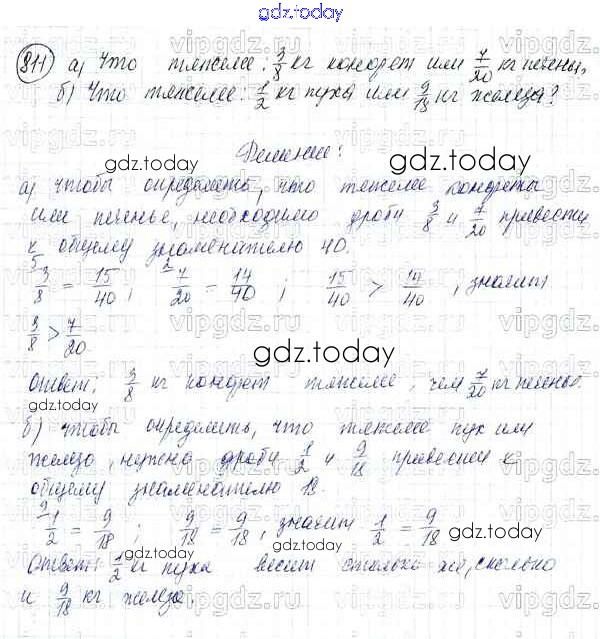 gdz.today
311) а) Что тяжелее: 3/8 кг конфет или 7/20 кг печенья,
б) Что тяжелее: 1/2 кг пуха или 9/18 кг железа?
gdz.today
Решение:
а) чтобы определить, что тяжелее конфеты
или печенье, необходимо дроби 3/8 и 7/20 привести
к общему знаменателю 40.
3/8 = 15/40; 7/20 = 14/40; 15/40 > 14/40, значит
3/8 > 7/20
gdz.today
Ответ: 3/8 кг конфет тяжелее, чем 7/20 кг печенья.
gdz.today
б) чтобы определить, что тяжелее пух или
железо нужно дроби 1/2 и 9/18 привести к
общему знаменателю 18.
1/2 = 9/18; 9/18 = 9/18, значит 1/2 = 9/18
gdz.today
Ответ: 1/2 кг пуха весит столько же, сколько
и 9/18 кг железа.